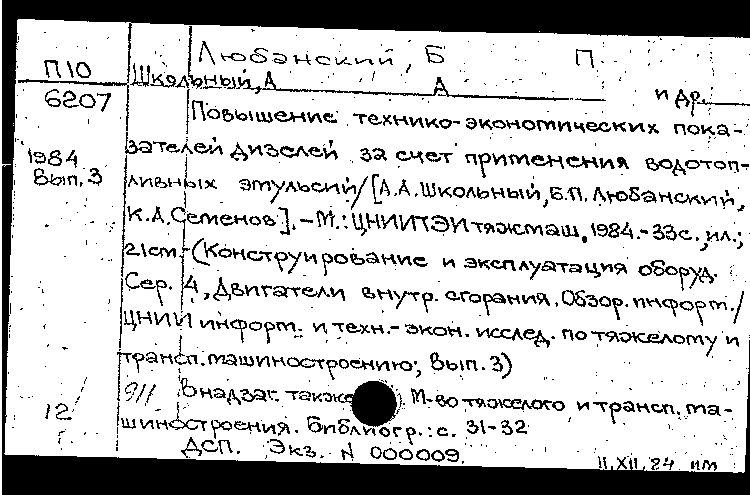 Любанский, Б П
П10
Школьный, А А и др.
6207
Повышение технико-экономических пока-
зателей дизелей за счет применения водотоп-
1984
Вып. 3
ливных эмульсий/[А.А.Школьный, Б.П.Любанский,
К.А.Семенов].-М.: ЦНИИТЭИтяжмаш, 1984.-33с., ил.;
21см.-(Конструирование и эксплуатация оборуд.
Сер. 4, Двигатели внутр. сгорания. Обзор. информ./
ЦНИИ информ. и техн.-экон. исслед. по тяжелому и
трансп. машиностроению; Вып. 3)
911 В надзаг. также М-во тяжелого и трансп. ма-
12/
шиностроения. Библиогр.: с. 31-32
ДСП. Экз. N 000009.
11.XII.84 им